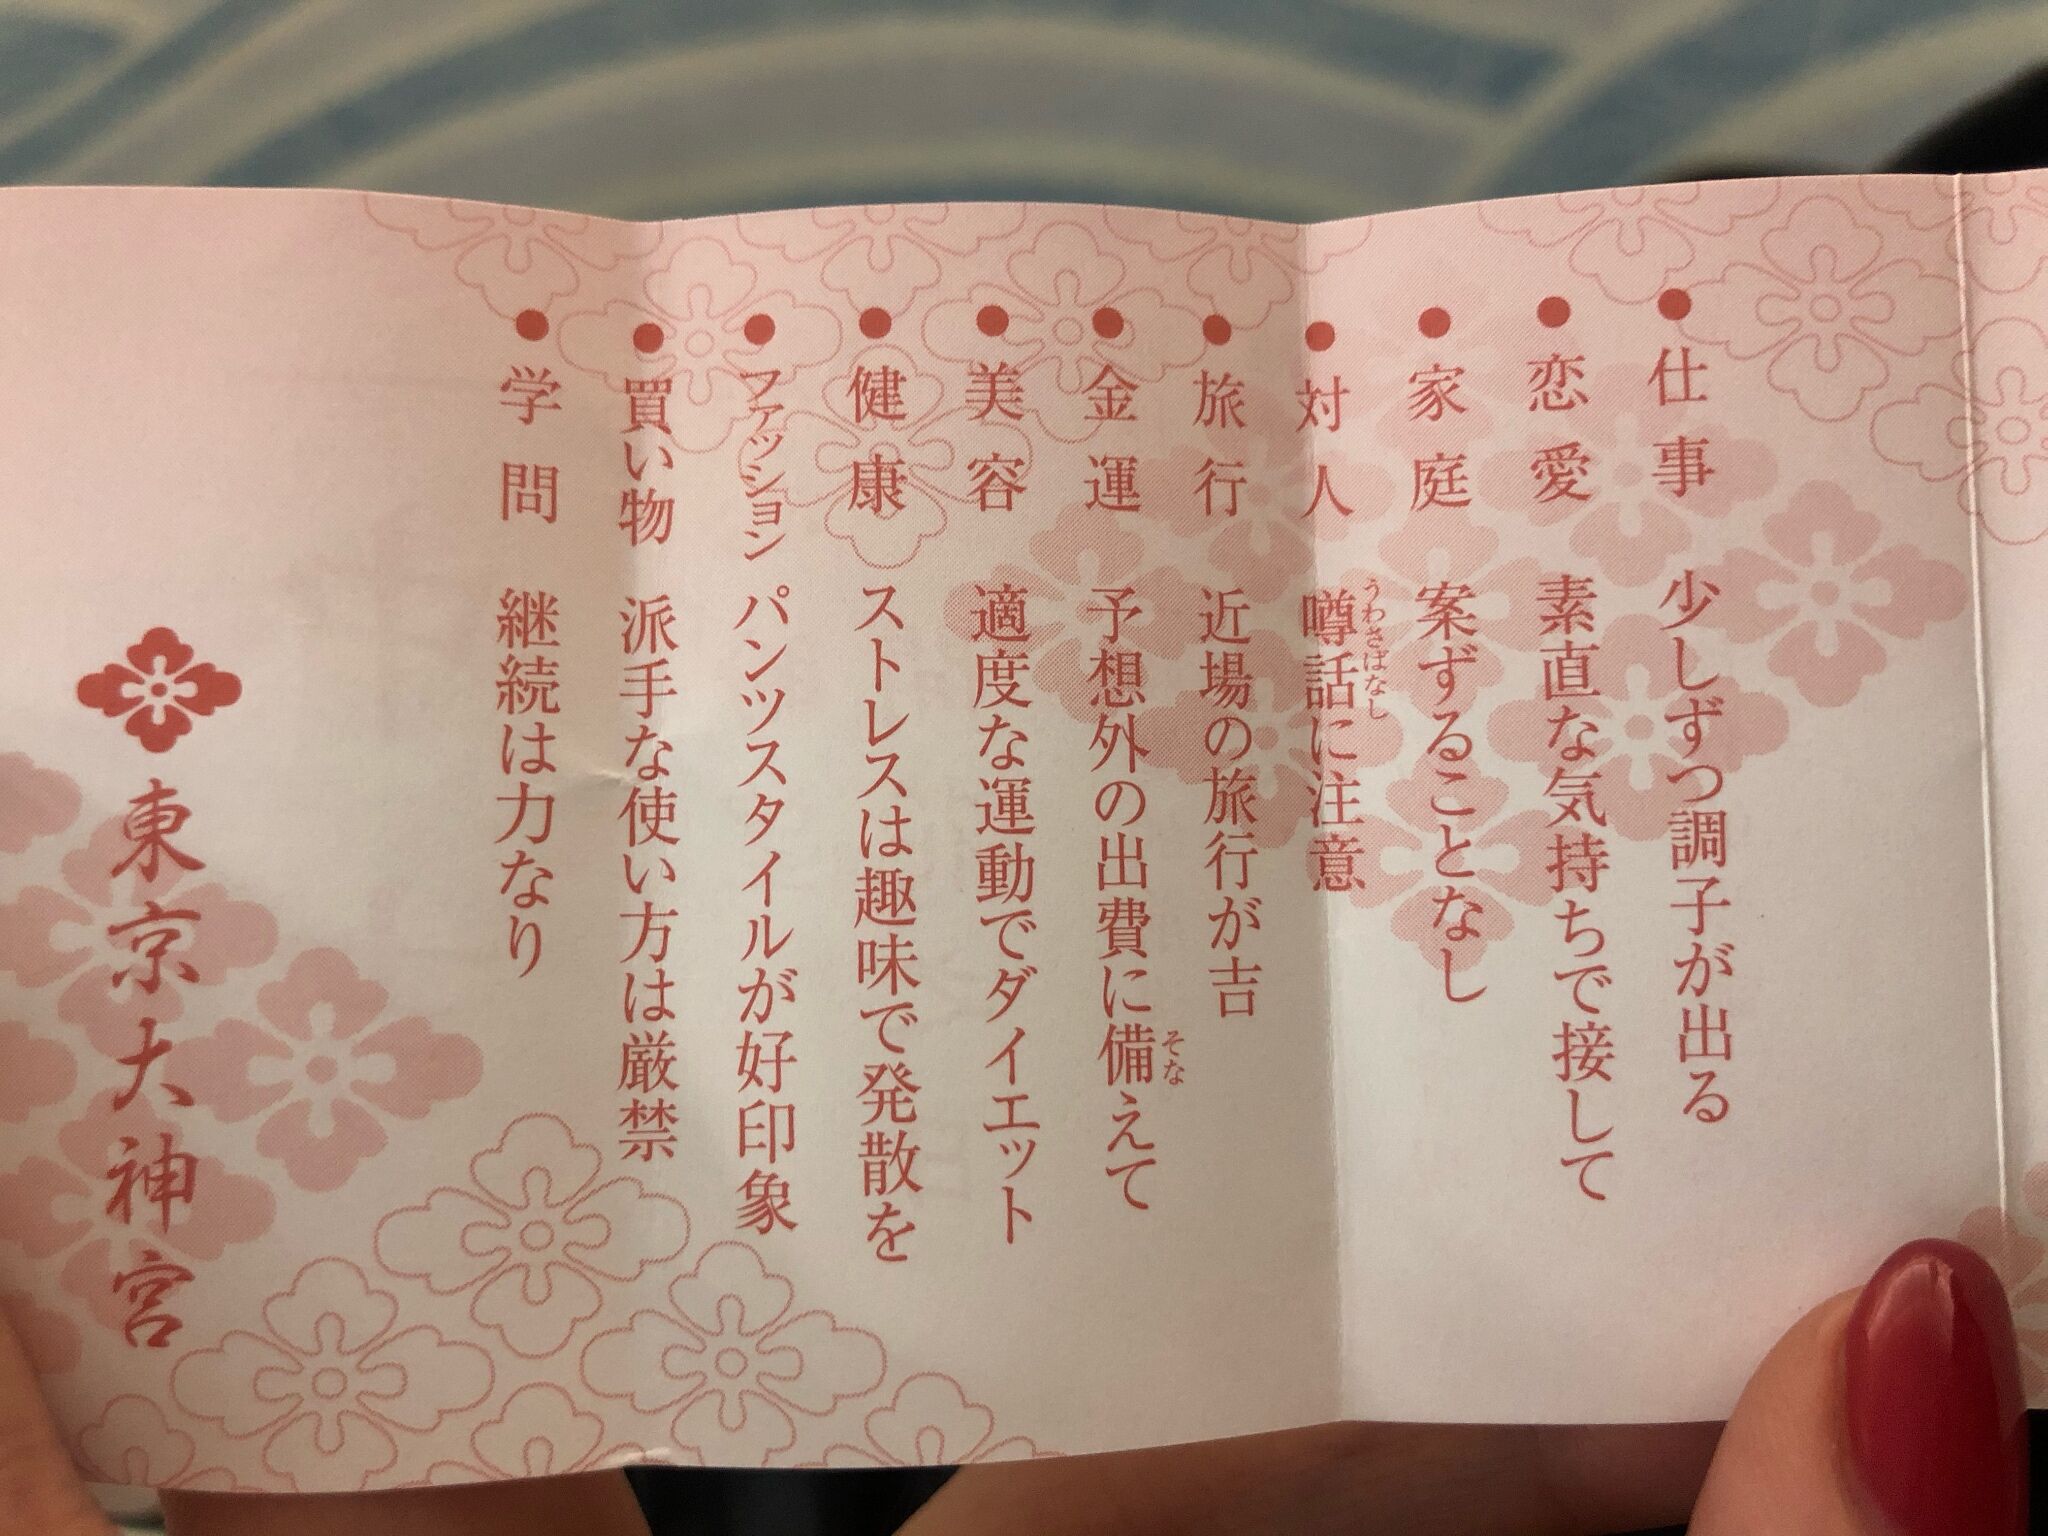 ●仕事 少しずつ調子が出る
●恋愛 素直な気持ちで接して
●家庭 案ずることなし
●対人 噂話に注意
うわさばなし
●旅行 近場の旅行が吉
●金運 予想外の出費に備えて
そな
●美容 適度な運動でダイエット
●健康 ストレスは趣味で発散を
●ファッション パンツスタイルが好印象
●買い物 派手な使い方は厳禁
●学問 継続は力なり
東京大神宮